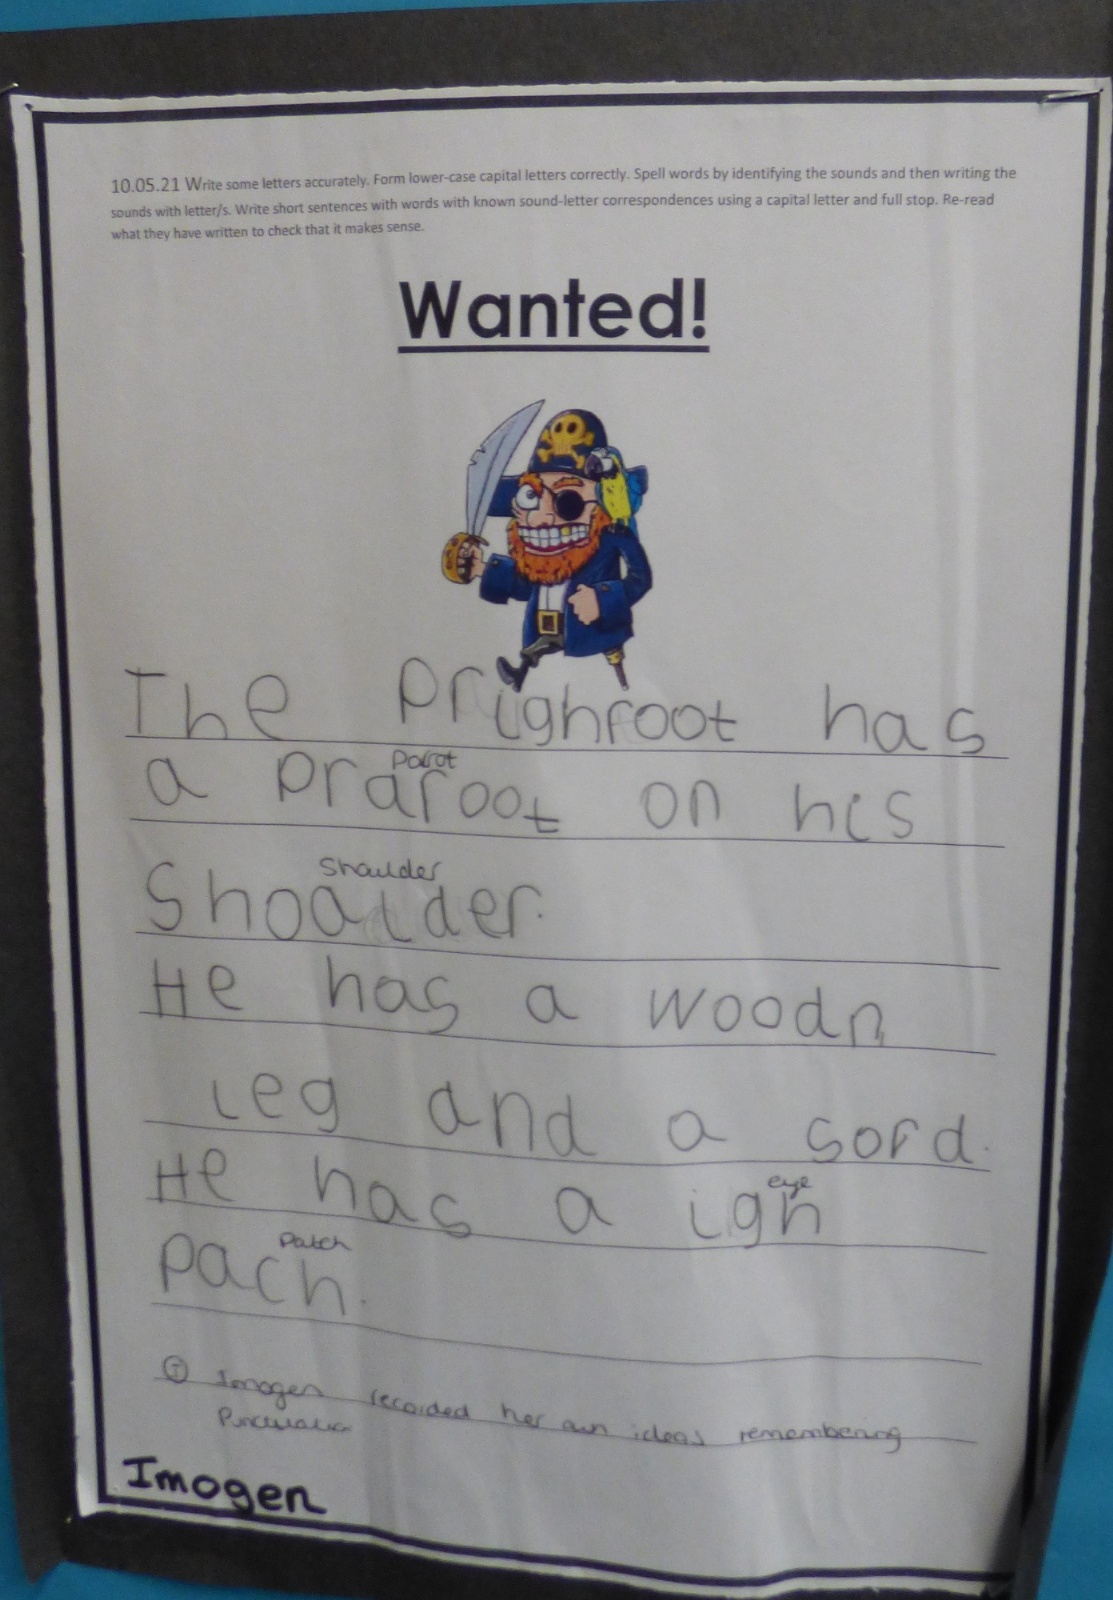 10.05.21 Write some letters accurately. Form lower-case capital letters correctly. Spell words by identifying the sounds and then writing the
sounds with letter/s. Write short sentences with words with known sound-letter correspondences using a capital letter and full stop. Re-read
what they have written to check that it makes sense.
Wanted!
The prighroot has
parot
a praroot on his
Shoulder
Shoalder.
He has a woodn
leg and a sord.
eye
He has a igh
patch
pach.
I Imogen recorded her own ideas remembering
punctuation
Imogen